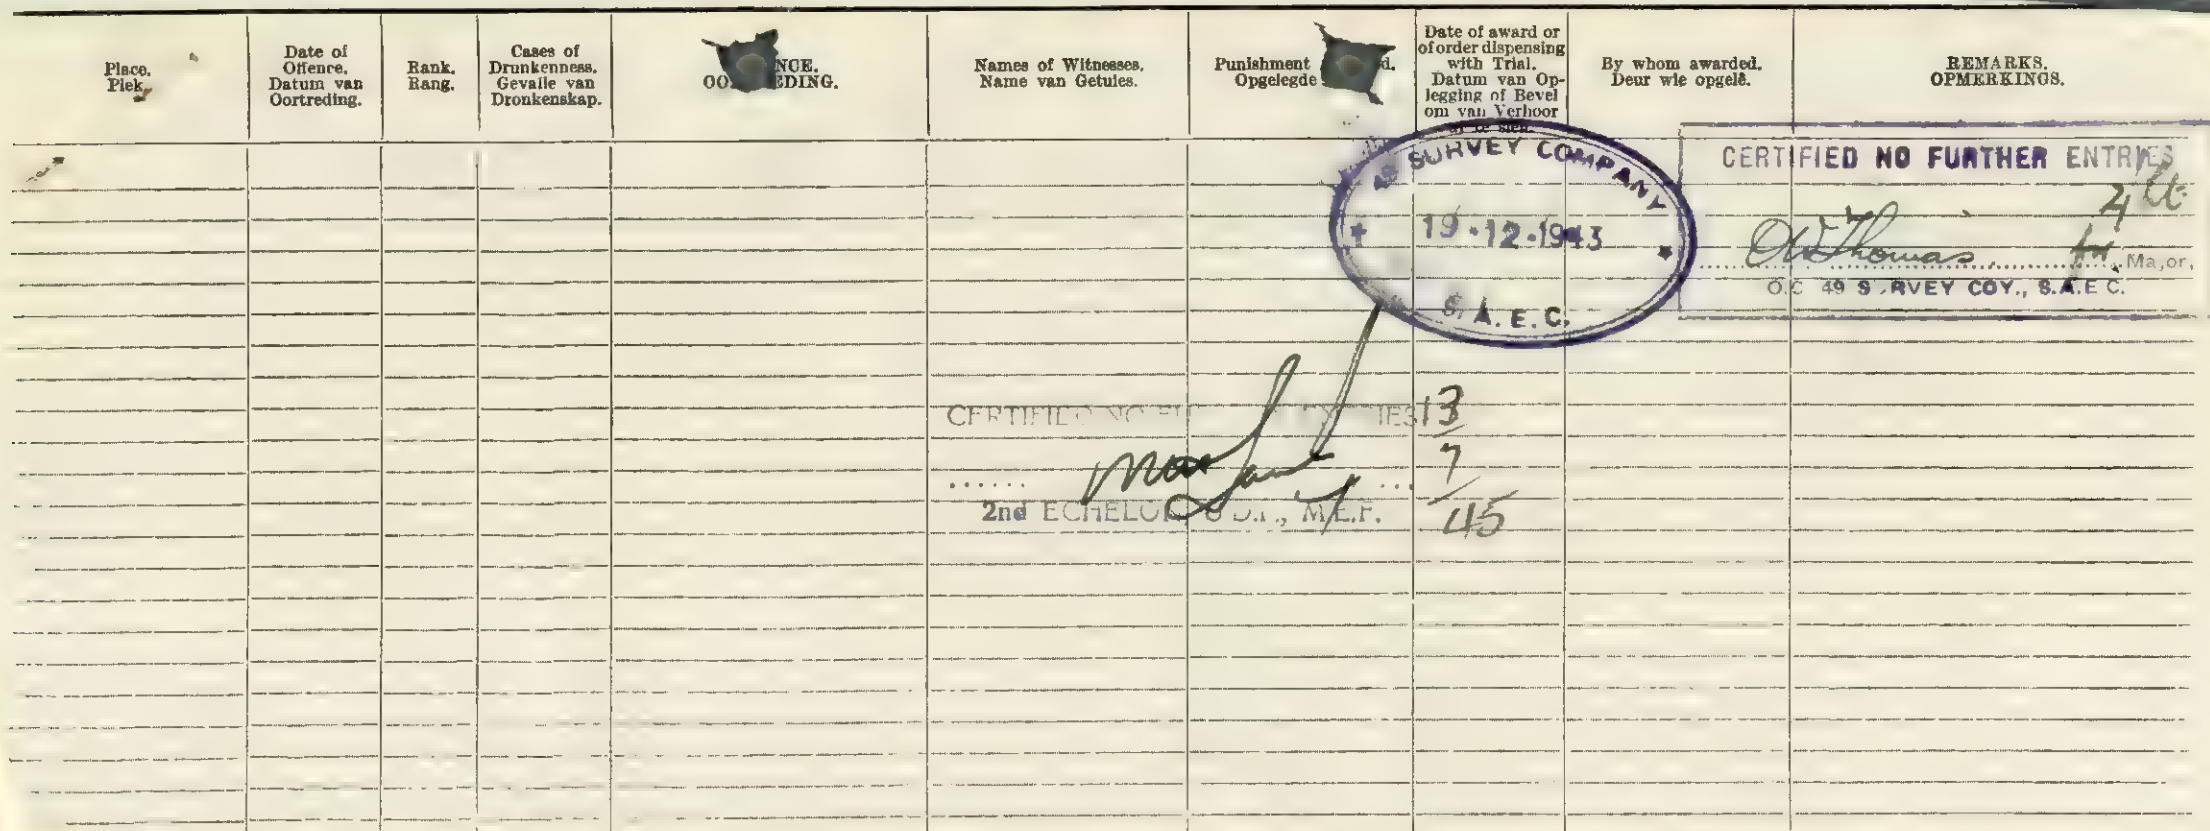 Place.
Plek
Date of
Offence.
Datum van
Oortreding.
Rank.
Rang.
Cases of
Drunkenness.
Gevalle van
Dronkenskap.
NCE.
OO EDING.
Names of Witnesses.
Name van Getuies.
Punishment d.
Opgelegde
Date of award or
of order dispensing
with Trial.
Datum van Op-
legging of Bevel
om van Verhoor
af te sien.
By whom awarded.
Deur wie opgelê.
REMARKS.
OPMERKINGS.
49 SURVEY COMPANY
19·12·1943
S.A.E.C.
CERTIFIED NO FURTHER ENTRIES
OW Thomas Major,
O.C 49 S RVEY COY., S.A.E C.
CERTIFIED NO FU IES
13
7
45
2nd ECHELON, U.D.F., M.E.F.